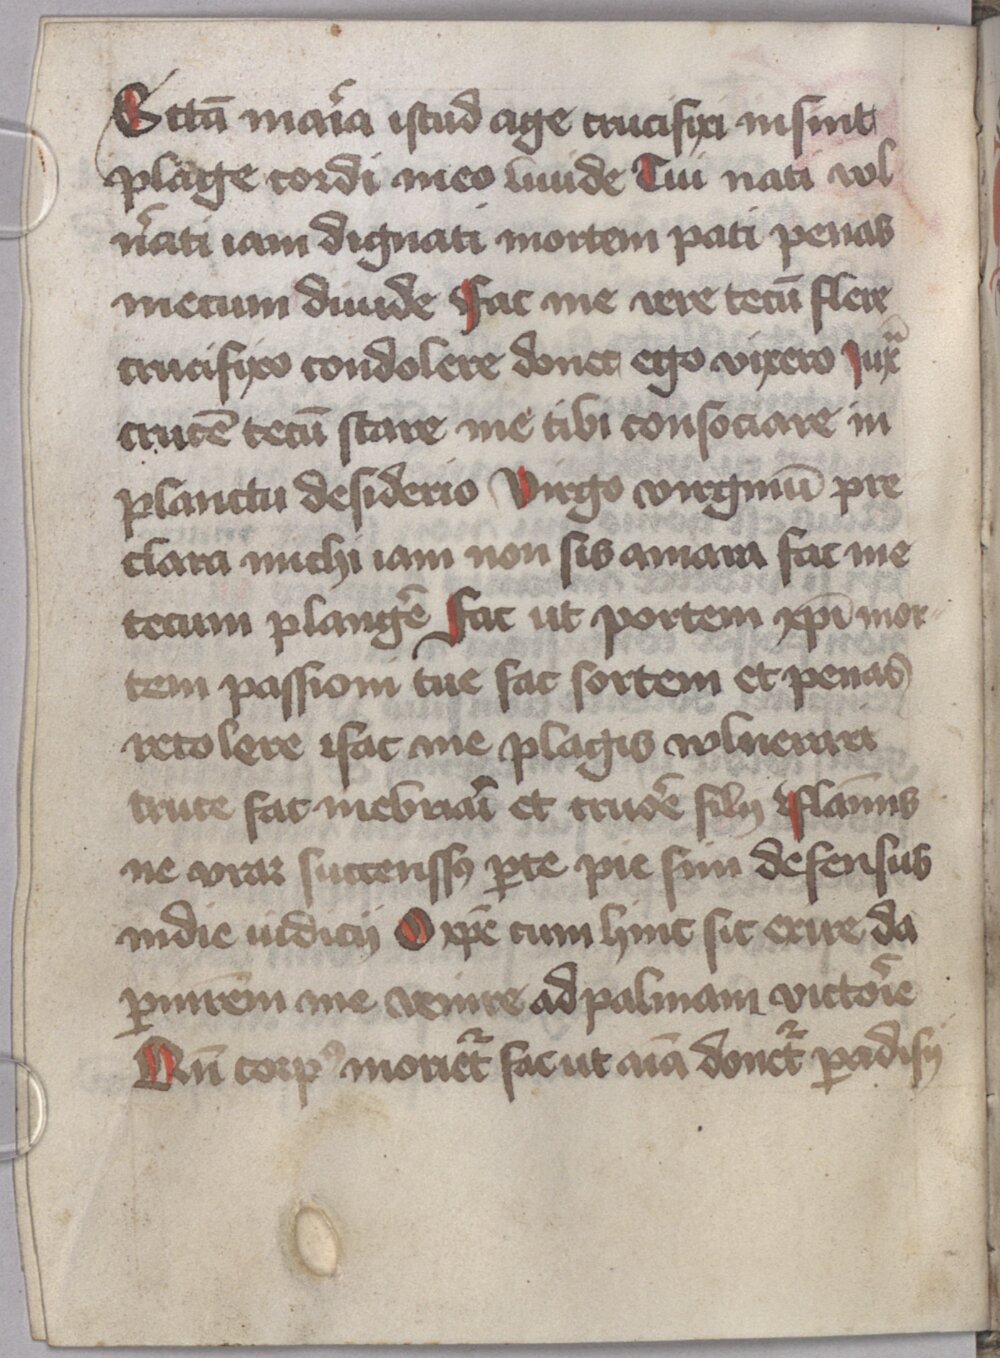 Sctā mar̄ia istud age crucifixi insint
plage cordi meo viuide Tui nati vul
n̄ati iam dignati mortem pati penas
mecum diuide Fac me vere tecū flere
crucifixo condolere donec ego vixero Iuxͣ
crucē tecū stare me tibi consociare in
planctu desiderio Virgo virginū pre
clara michi iam non sis amara fac me
tecum planḡe Fac ut portem xp̄i mor
tem passioni tue fac sortem et penas
recolere ffac me plagis vulnerari
cruce fac inebriari et cruo᷑e filij Flāmis
ne vrar succenssꝫ p̱te pie sim defensus
indie iudicij O xp̄e cum hinc sit exire da
p̱ mr̄em me venire ad palmam victor̄ie
Dū corpꝰ moriet᷑ fac ut aīa donet᷑ p̱adisij